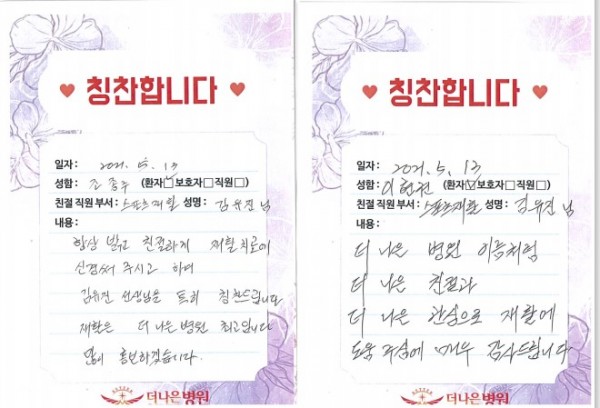 ♥ 칭찬합니다 ♥
일자 : 2021. 5. 13
성함 : 조종우 (환자□보호자□직원□)
친절 직원 부서 : 스포츠재활 성명 : 김유진 님
내용 :
항상 밝고 친절하게 재활치료에
신경써 주시고 하여
김유진 선생님을 특히 칭찬드립니다
재활은 더 나은 병원 최고입니다
많이 홍보하겠습니다.
더나은병원
♥ 칭찬합니다 ♥
일자 : 2021. 5. 13
성함 : 이현진 (환자☑보호자□직원□)
친절 직원 부서 : 스포츠재활 성명 : 김유진 님
내용 :
더 나은 병원 이름처럼
더 나은 친절과
더 나은 관심으로 재활에
도움 주심에 매우 감사드립니다
더나은병원